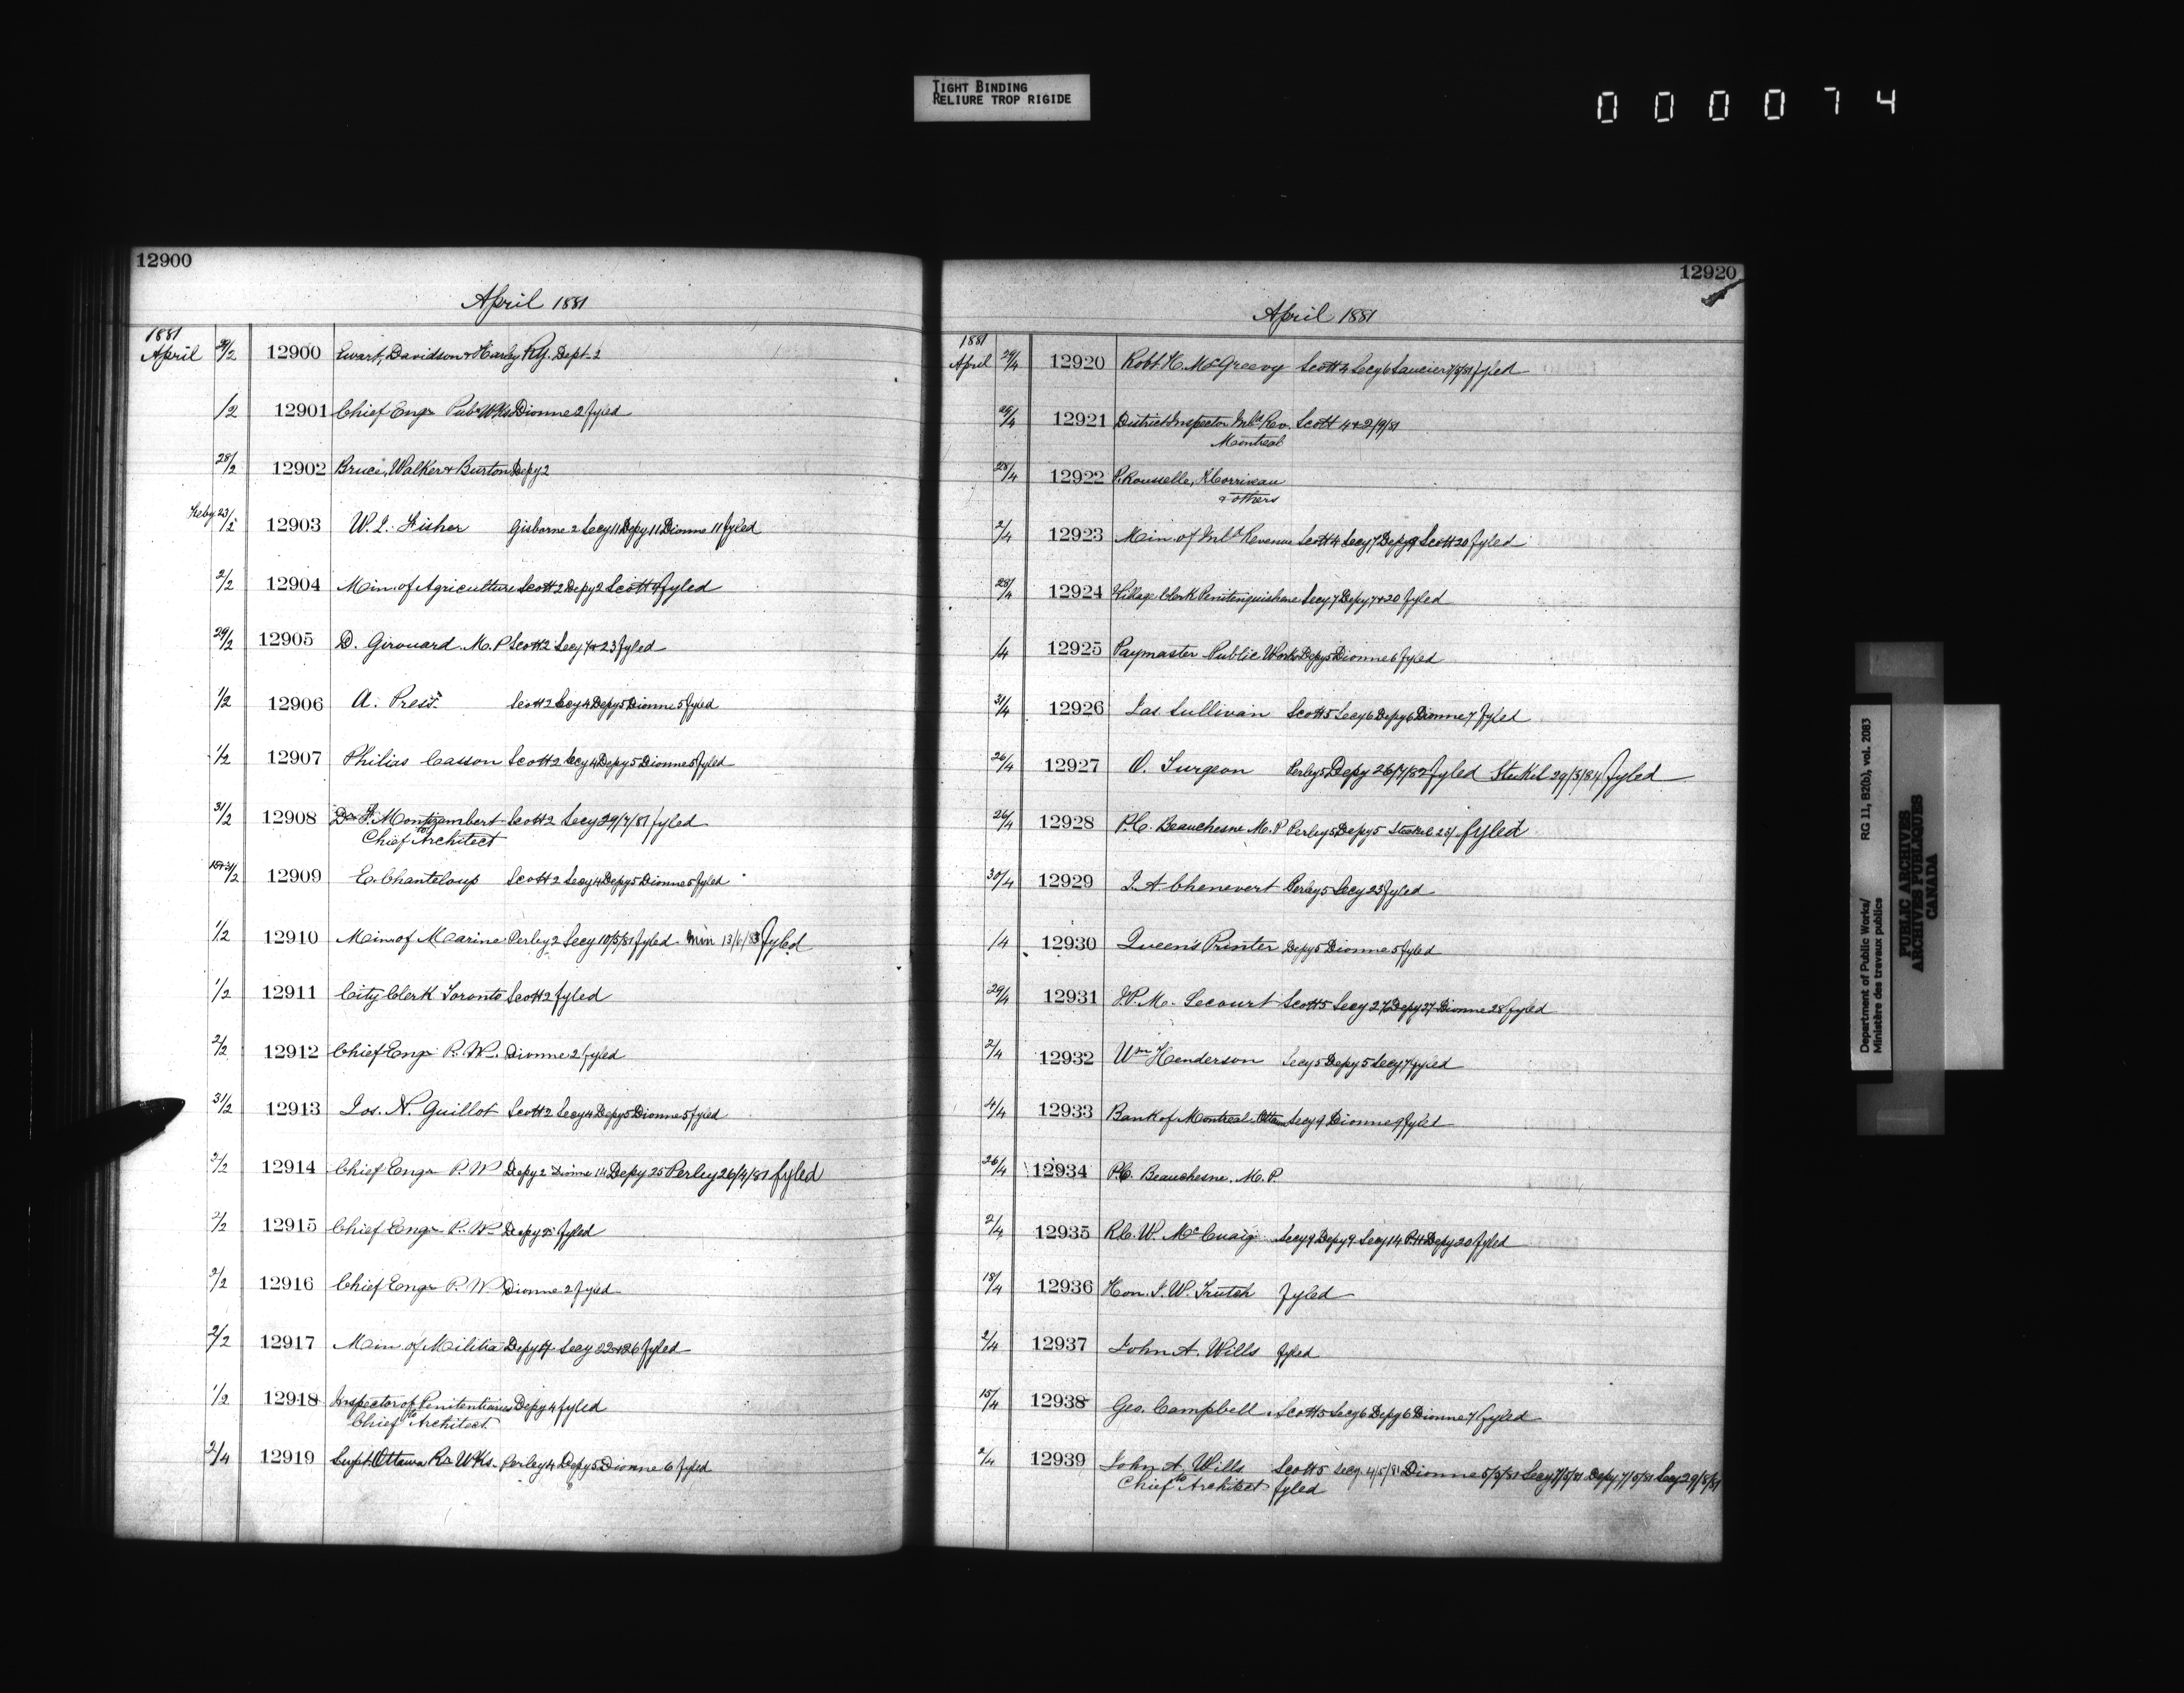 TIGHT BINDING
RELIURE TROP RIGIDE
000074
12900
April 1881
1881
April 29/2 12900 Ewart, Davidson & Harley Ry. Dept. 2
1/2 12901 Chief Engr Pub. Wks Dionne 2 fyled
28/2 12902 Bruce, Walker & Burton Depy 2
Feby 23/2 12903 W. L. Fisher Gisborne 2 Secy 11 Depy 11 Dionne 11 fyled
2/2 12904 Min. of Agriculture Scott 2 Depy 2 Scott 4 fyled
29/2 12905 D. Girouard M.P Scott 2 Secy 7 & 23 fyled
1/2 12906 A. Press Scott 2 Secy 4 Depy 5 Dionne 5 fyled
1/2 12907 Philias Casson Scott 2 Secy 4 Depy 5 Dionne 5 fyled
31/2 12908 Dr F. Montizambert Scott 2 Secy 29/7/81 fyled
to Chief Architect
31/2 12909 E. Chanteloup Scott 2 Secy 4 Depy 5 Dionne 5 fyled
1/2 12910 Min. of Marine Perley 2 Secy 10/5/81 fyled Min 13/6/83 fyled
1/2 12911 City Clerk Toronto Scott 2 fyled
2/2 12912 Chief Engr P.W. Dionne 2 fyled
31/2 12913 Jos. N. Guillot Scott 2 Secy 4 Depy 5 Dionne 5 fyled
2/2 12914 Chief Engr P.W Depy 2 Dionne 14 Depy 25 Perley 26/4/81 fyled
2/2 12915 Chief Engr P.W Depy fyled
2/2 12916 Chief Engr P.W Dionne 2 fyled
2/2 12917 Min. of Militia Depy Secy 22 & 26 fyled
1/2 12918 Inspector of Penitentiaries Depy 4 fyled
to Chief Architect
2/4 12919 Supt. Ottawa Rr Wks. Perley 4 Depy 5 Dionne 6 fyled
12920
April 1881
1881
April 29/4 12920 Robt H. McGreevy Scott 4 Secy 6 Saucier 7/5/81 fyled
29/4 12921 District Inspector Inld Rev. Scott 4 & 2/9/81
Montreal
28/4 12922 P. Rousselle, Corriveau
& others
2/4 12923 Min. of Inld Revenue Scott 4 Secy 7 Depy 9 Scott 20 fyled
28/4 12924 Village Clerk Penitenguishene Secy 7 Depy 7 & 20 fyled
/4 12925 Paymaster Public Works Depy 5 Dionne 6 fyled
31/4 12926 Jas Sullivan Scott 5 Secy 6 Depy 6 Dionne 7 fyled
26/4 12927 O. Turgeon Perley 5 Depy 26/7/82 fyled Steckel 29/3/84 fyled
26/4 12928 P.C. Beauchesne M.P Perley 5 Depy 5 Steckel 23/ fyled
30/4 12929 J. A. Chenevert Perley 5 Secy 23 fyled
/4 12930 Queen's Printer Depy 5 Dionne 5 fyled
29/4 12931 J.P.M. Lecourt Scott 5 Secy 27 Depy 27 Dionne 28 fyled
2/4 12932 Wm Henderson Secy 5 Depy 5 Secy 7 fyled
4/4 12933 Bank of Montreal Ottawa Secy 9 Dionne 9 fyled
26/4 12934 P.C. Beauchesne. M.P.
2/4 12935 R.C.W. McCuaig Secy 9 Depy 9 Secy 14 Depy 20 fyled
18/4 12936 Hon. J. W. Trutch fyled
2/4 12937 John A. Wills fyled
15/4 12938 Geo. Campbell Scott 5 Secy 6 Depy 6 Dionne 7 fyled
2/4 12939 John A. Wills Scott 5 Secy 4/5/81 Dionne 5/5/81 Secy 7/5/81 Depy 7/5/81 Secy 29/8/81
to Chief Architect fyled
Department of Public Works/ RG 11, B2(b), vol. 2083
Ministère des travaux publics
PUBLIC ARCHIVES
ARCHIVES PUBLIQUES
CANADA